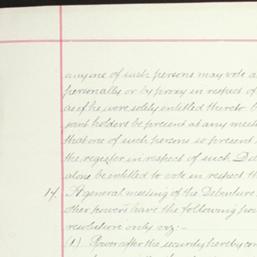 any one of such persons may vote a
personally or by proxy in respect of
as if he were solely entitled thereto
joint holders be present at any meet
that one of such persons so present
the register in respect of such Deb
alone be entitled to vote in respect th
14. A general meeting of the Debenture
other powers have the following pow
resolution only viz:-
(1). Power after the security hereby con